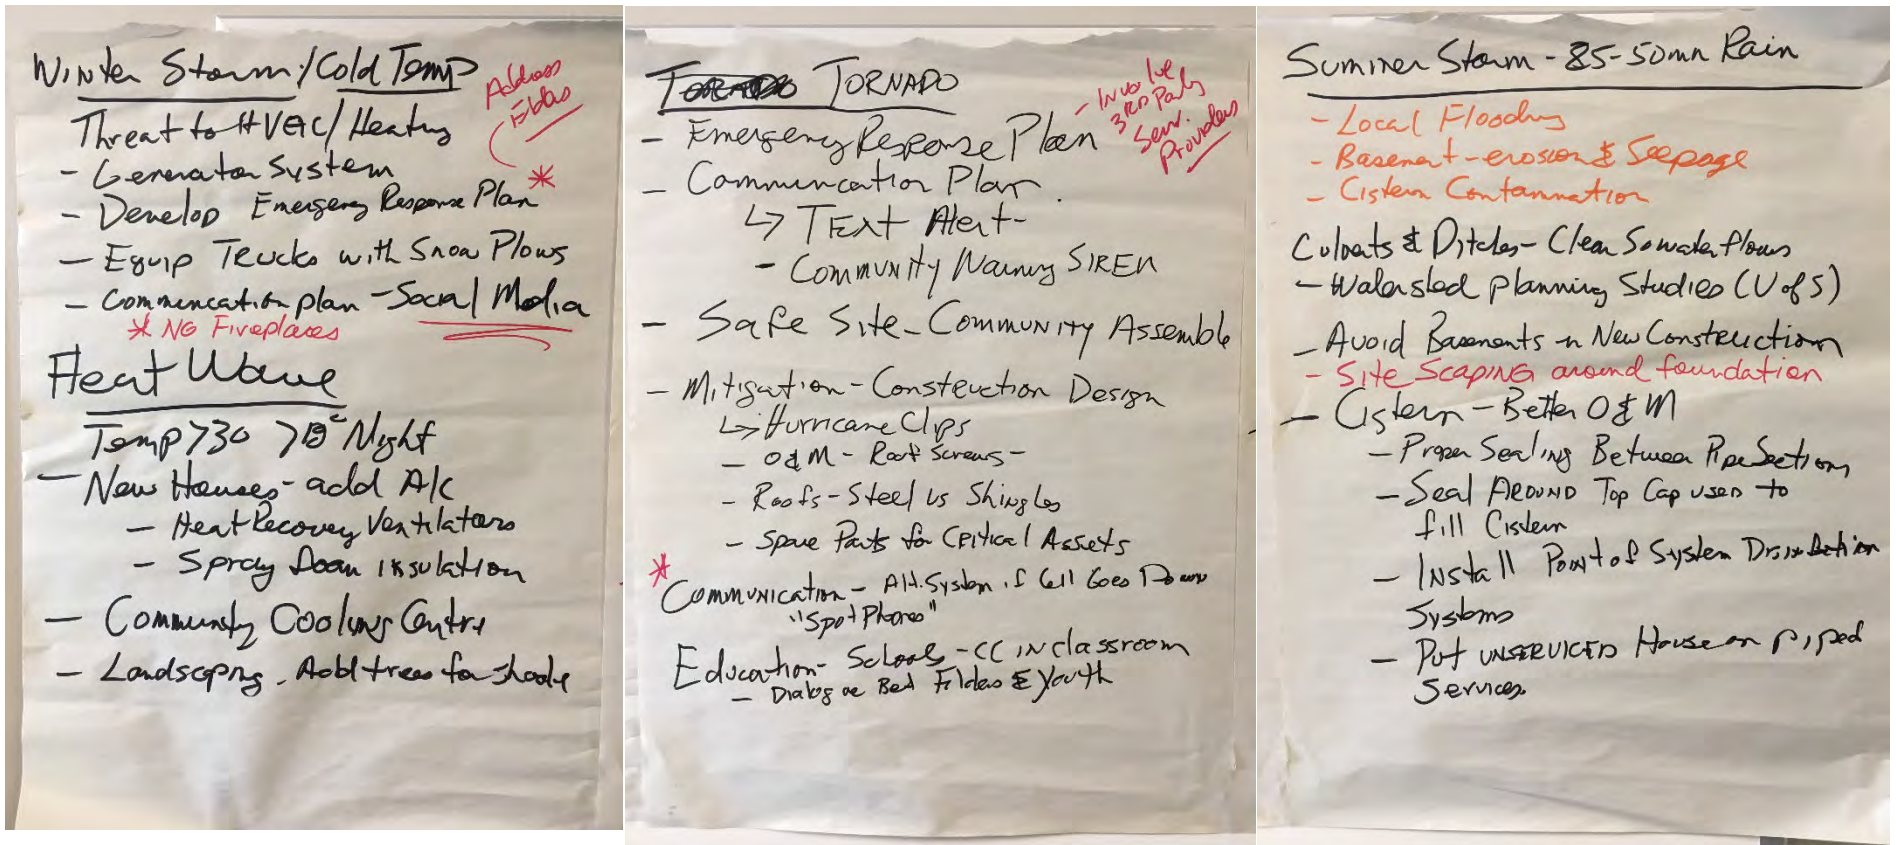 Winter Storm / Cold Temp
Address
Elders
Threat to HVAC / Heating
- Generator System
- Develop Emergency Response Plan *
- Equip Trucks with Snow Plows
- Communication plan - Social Media
* NO Fireplaces
Heat Wave
Temp >30 > Night
- New Houses - add A/C
- Heat Recovery Ventilators
- Spray Foam insulation
- Community Cooling Centre
- Landscaping - Add trees for shade
TORNADO
- Involve
3RD Party
Serv.
Providers
- Emergency Response Plan
- Communication Plan
↳ TEXT Alert -
- Community Warning SIREN
- Safe Site - Community Assemble
- Mitigation - Construction Design
↳ Hurricane Clips
- O & M - Roof Screws -
- Roofs - Steel vs Shingles
- Spare Parts for Critical Assets
*
Communication - Alt. System if Cell Goes Down
"Spot Phones"
Education - Schools - CC IN classroom
- Dialogue Bet Elders & Youth
Summer Storm - 25-50mm Rain
- Local Flooding
- Basement - erosion & Seepage
- Cistern Contamination
Culverts & Ditches - Clean So water flows
- Watershed planning Studies (U of S)
- Avoid Basements in New Construction
- Site Scaping around foundation
- Cistern - Better O & M
- Proper Sealing Between Pipe Sections
- Seal AROUND Top Cap used to
fill Cistern
- Install Point of System Disinfection
Systems
- Put UNSERVICED House on piped
Services